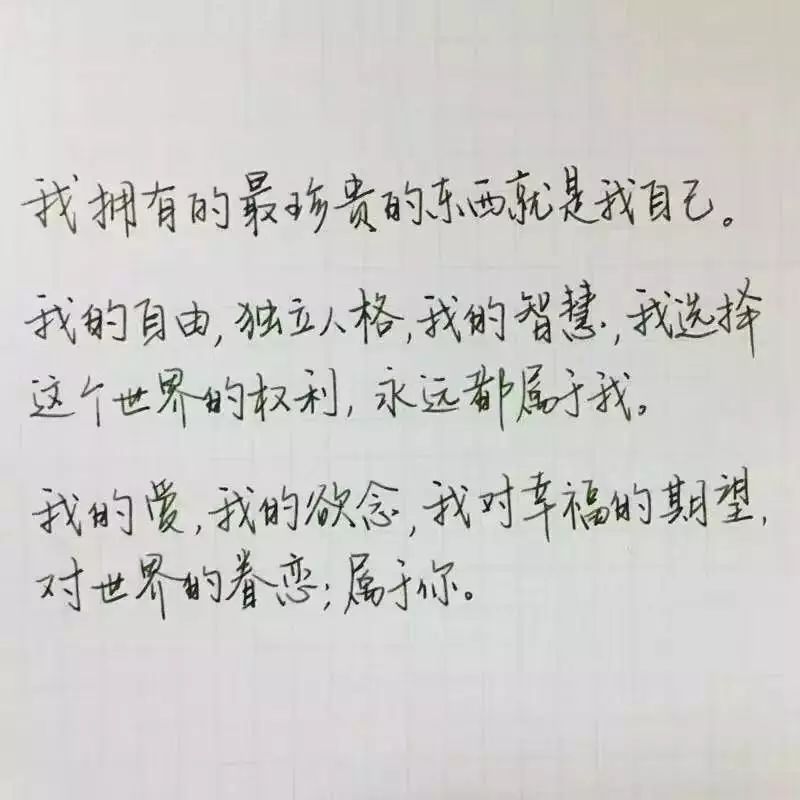 我拥有的最珍贵的东西就是我自己。
我的自由,独立人格,我的智慧,我选择
这个世界的权利,永远都属于我。
我的爱,我的欲念,我对幸福的期望,
对世界的眷恋;属于你。